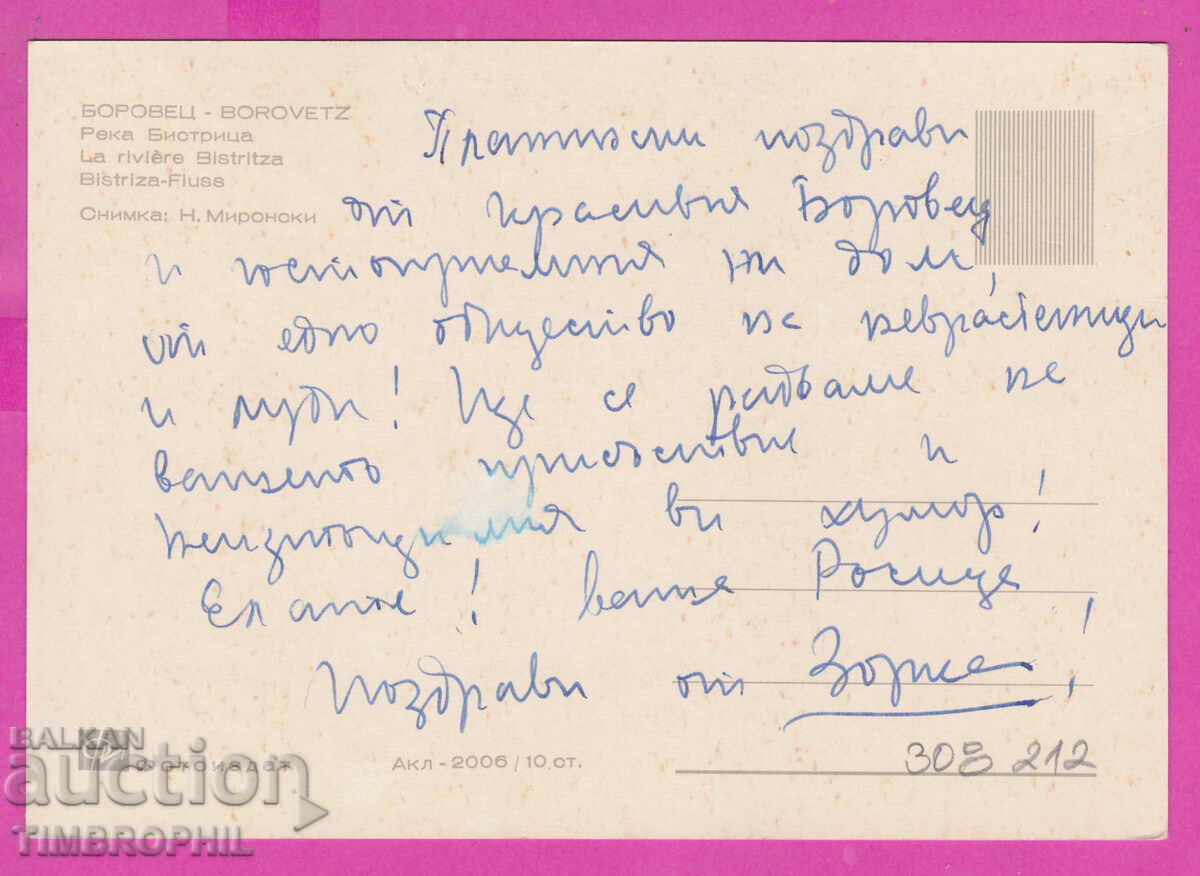 БОРОВЕЦ - BOROVETZ
Река Бистрица
La rivière Bistritza
Bistriza-Fluss
Снимка: Н. Миронски
Пратъсти поздрави
от красивия Боровец
и гостоприемния ни дом,
от едно общество на неврастеници
и луди! Ще се радваме на
вашето присъствие и
неизтощимия ви хумор!
Елате! ваша Росица,
Поздрави от Зорка!
Фотоиздат
Акл-2006/10 ст.
308 212
BALKAN
auction
TIMBROPHIL